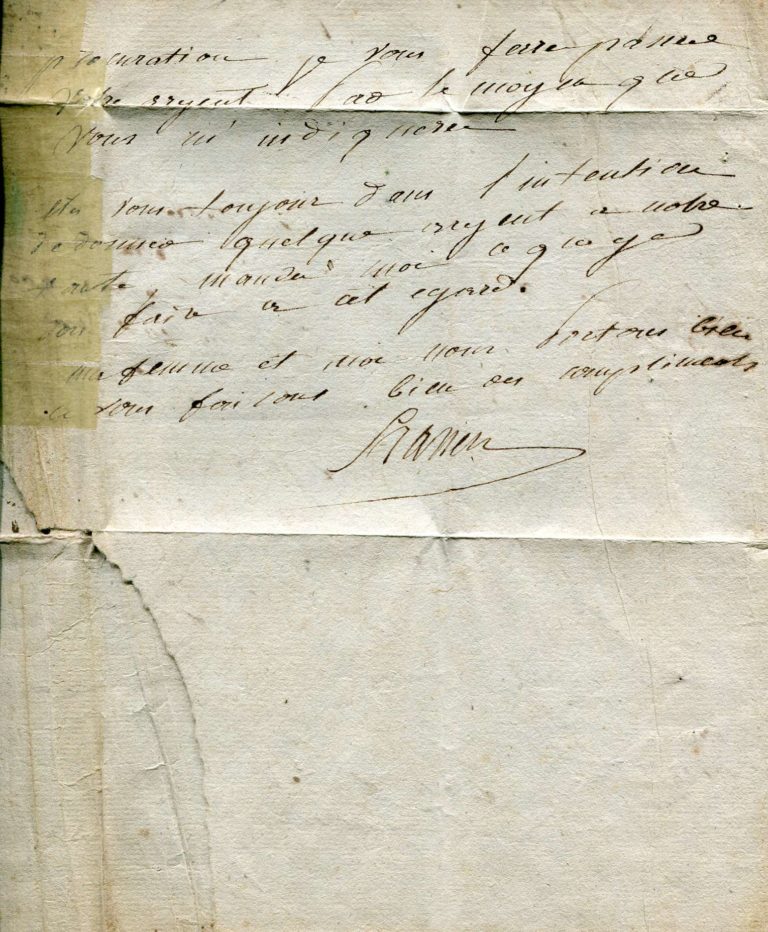 procuration je vous ferré passée
votre argent par le moyen que
vous m'indiqueree
ete vous toujour dans l'intention
de donnee quelque argent a notre
tante, mandee moi ce que je
doi faire a cet egard.
ma femme et moi nous portons bien
et vous faisons bien des compliments